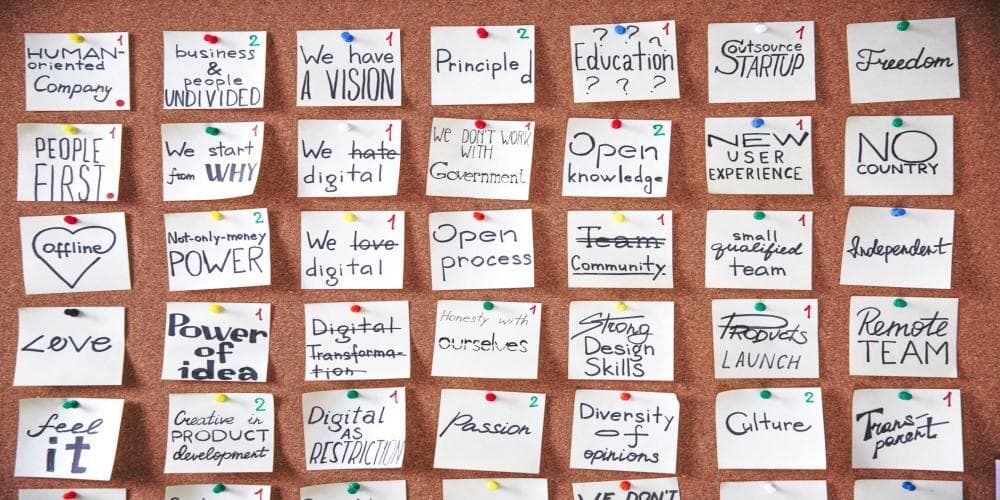 HUMAN- 1
oriented
Company
business 2
&
people
UNDIVIDED
We have 1
A VISION
Principled 2
? ? ? 1
Education
? ? ?
Outsource 1
STARTUP
Freedom
PEOPLE 1
FIRST
We start 1
from WHY
We hate 1
digital
We DON'T WORK 1
WITH
Government
Open 2
knowledge
NEW 1
USER
EXPERIENCE
NO
COUNTRY
offline
Not-only-money 2
POWER
We love 1
digital
Open
process
Team 1
Community
small 1
qualified
team
Independent
Love
Power 1
of
idea
Digital
Transforma-
tion
Honesty with 1
ourselves
Strong
Design
Skills
PRODUCTS 1
LAUNCH
Remote
TEAM
feel
it
Creative in 2
PRODUCT
development
Digital 1
AS
RESTRICTION
Passion 2
Diversity
of
opinions
Culture 2
Trans- 1
parent
1
WE DON'T